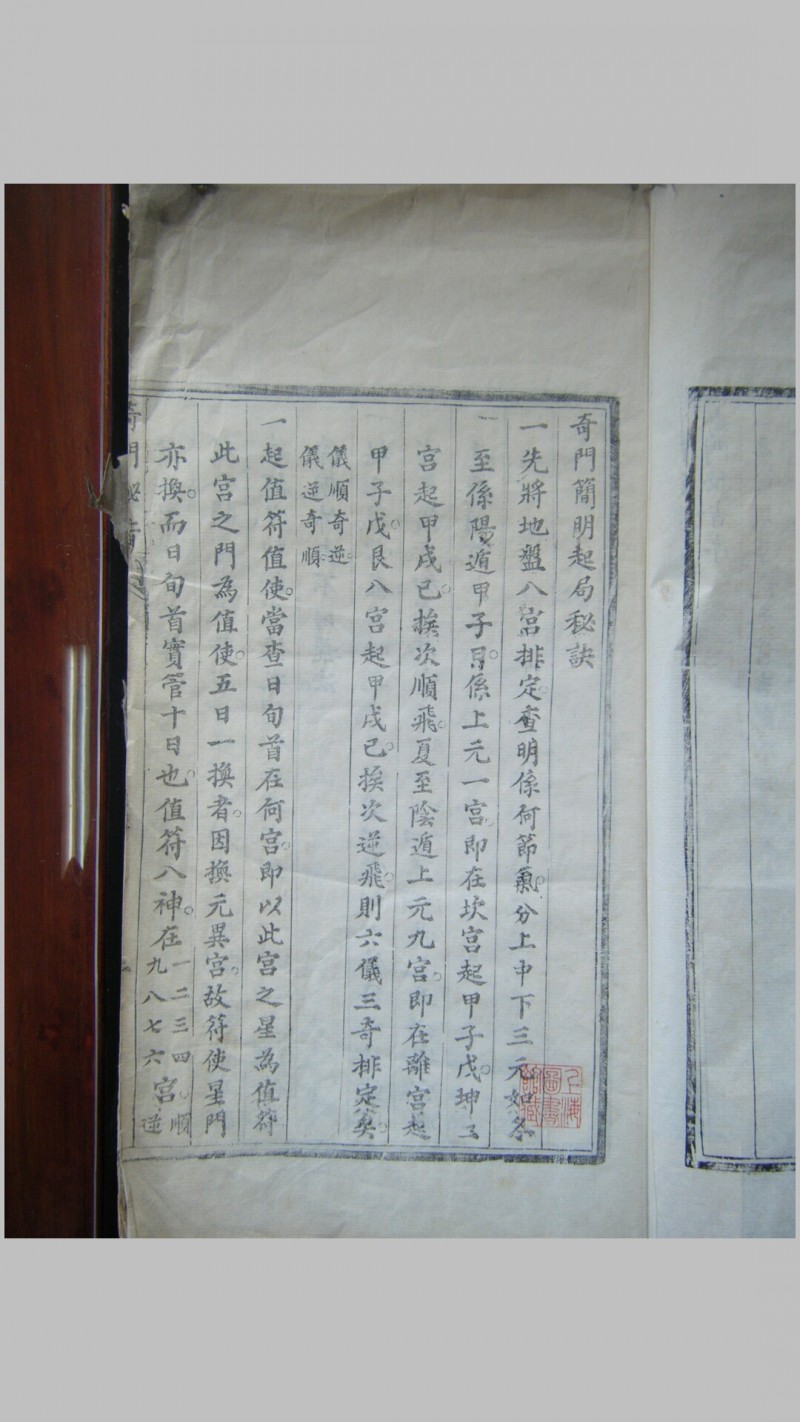 奇門簡明起局秘訣
一先將地盤八宮排定查明係何節氣分上中下三元如冬
至係陽遁甲子日係上元一宮即在坎宮起甲子戊坤二
宮起甲戌己挨次順飛夏至陰遁上元九宮即在離宮起
甲子戊艮八宮起甲戌己挨次逆飛則六儀三奇排定矣
儀順奇逆
儀逆奇順
一起值符值使當查日旬首在何宮即以此宮之星為值符
此宮之門為值使五日一換者因換元異宮故符使星門
亦換而日旬首實管十日也值符八神在一二三四九八七六宮順逆
奇門秘
上海圖書館藏